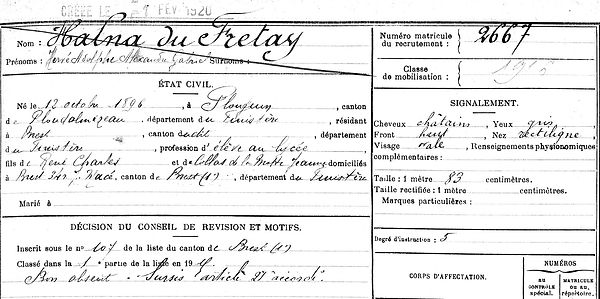 CRÉÉE LE 1 FEV 1920
Nom : Halna du Fretay
Prénoms : Hervé Adolphe Alexandre Gabriel Surnoms :
ÉTAT CIVIL.
Né le 12 octobre 1896, à Plouguin, canton
de Ploudalmézeau, département du Finistère, résidant
à Brest, canton dudit, département
du Finistère, profession d'élève au lycée
fils de René Charles et de Collas de la Motte Jeanne domiciliés
à Brest, canton de Brest (1), département du Finistère
Marié à
DÉCISION DU CONSEIL DE REVISION ET MOTIFS.
Inscrit sous le n° 107 de la liste du canton de Brest (1)
Classé dans la 1e partie de la liste en 19
Bon absent - Sursis article 21 accordé
Numéro matricule
du recrutement : 2667
Classe
de mobilisation :
SIGNALEMENT.
Cheveux châtains, Yeux gris
Front haut, Nez rectiligne
Visage ovale, Renseignements physionomiques
complémentaires :
Taille : 1 mètre 83 centimètres.
Taille rectifiée : 1 mètre centimètres.
Marques particulières :
Degré d'instruction : 5
CORPS D'AFFECTATION.
NUMÉROS
AU
CONTRÔLE
spécial.
MATRICULE
OU AU
répertoire.